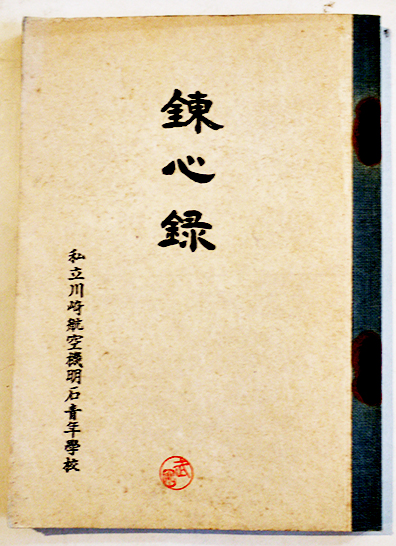 錬心録
私立川崎航空機明石青年學校